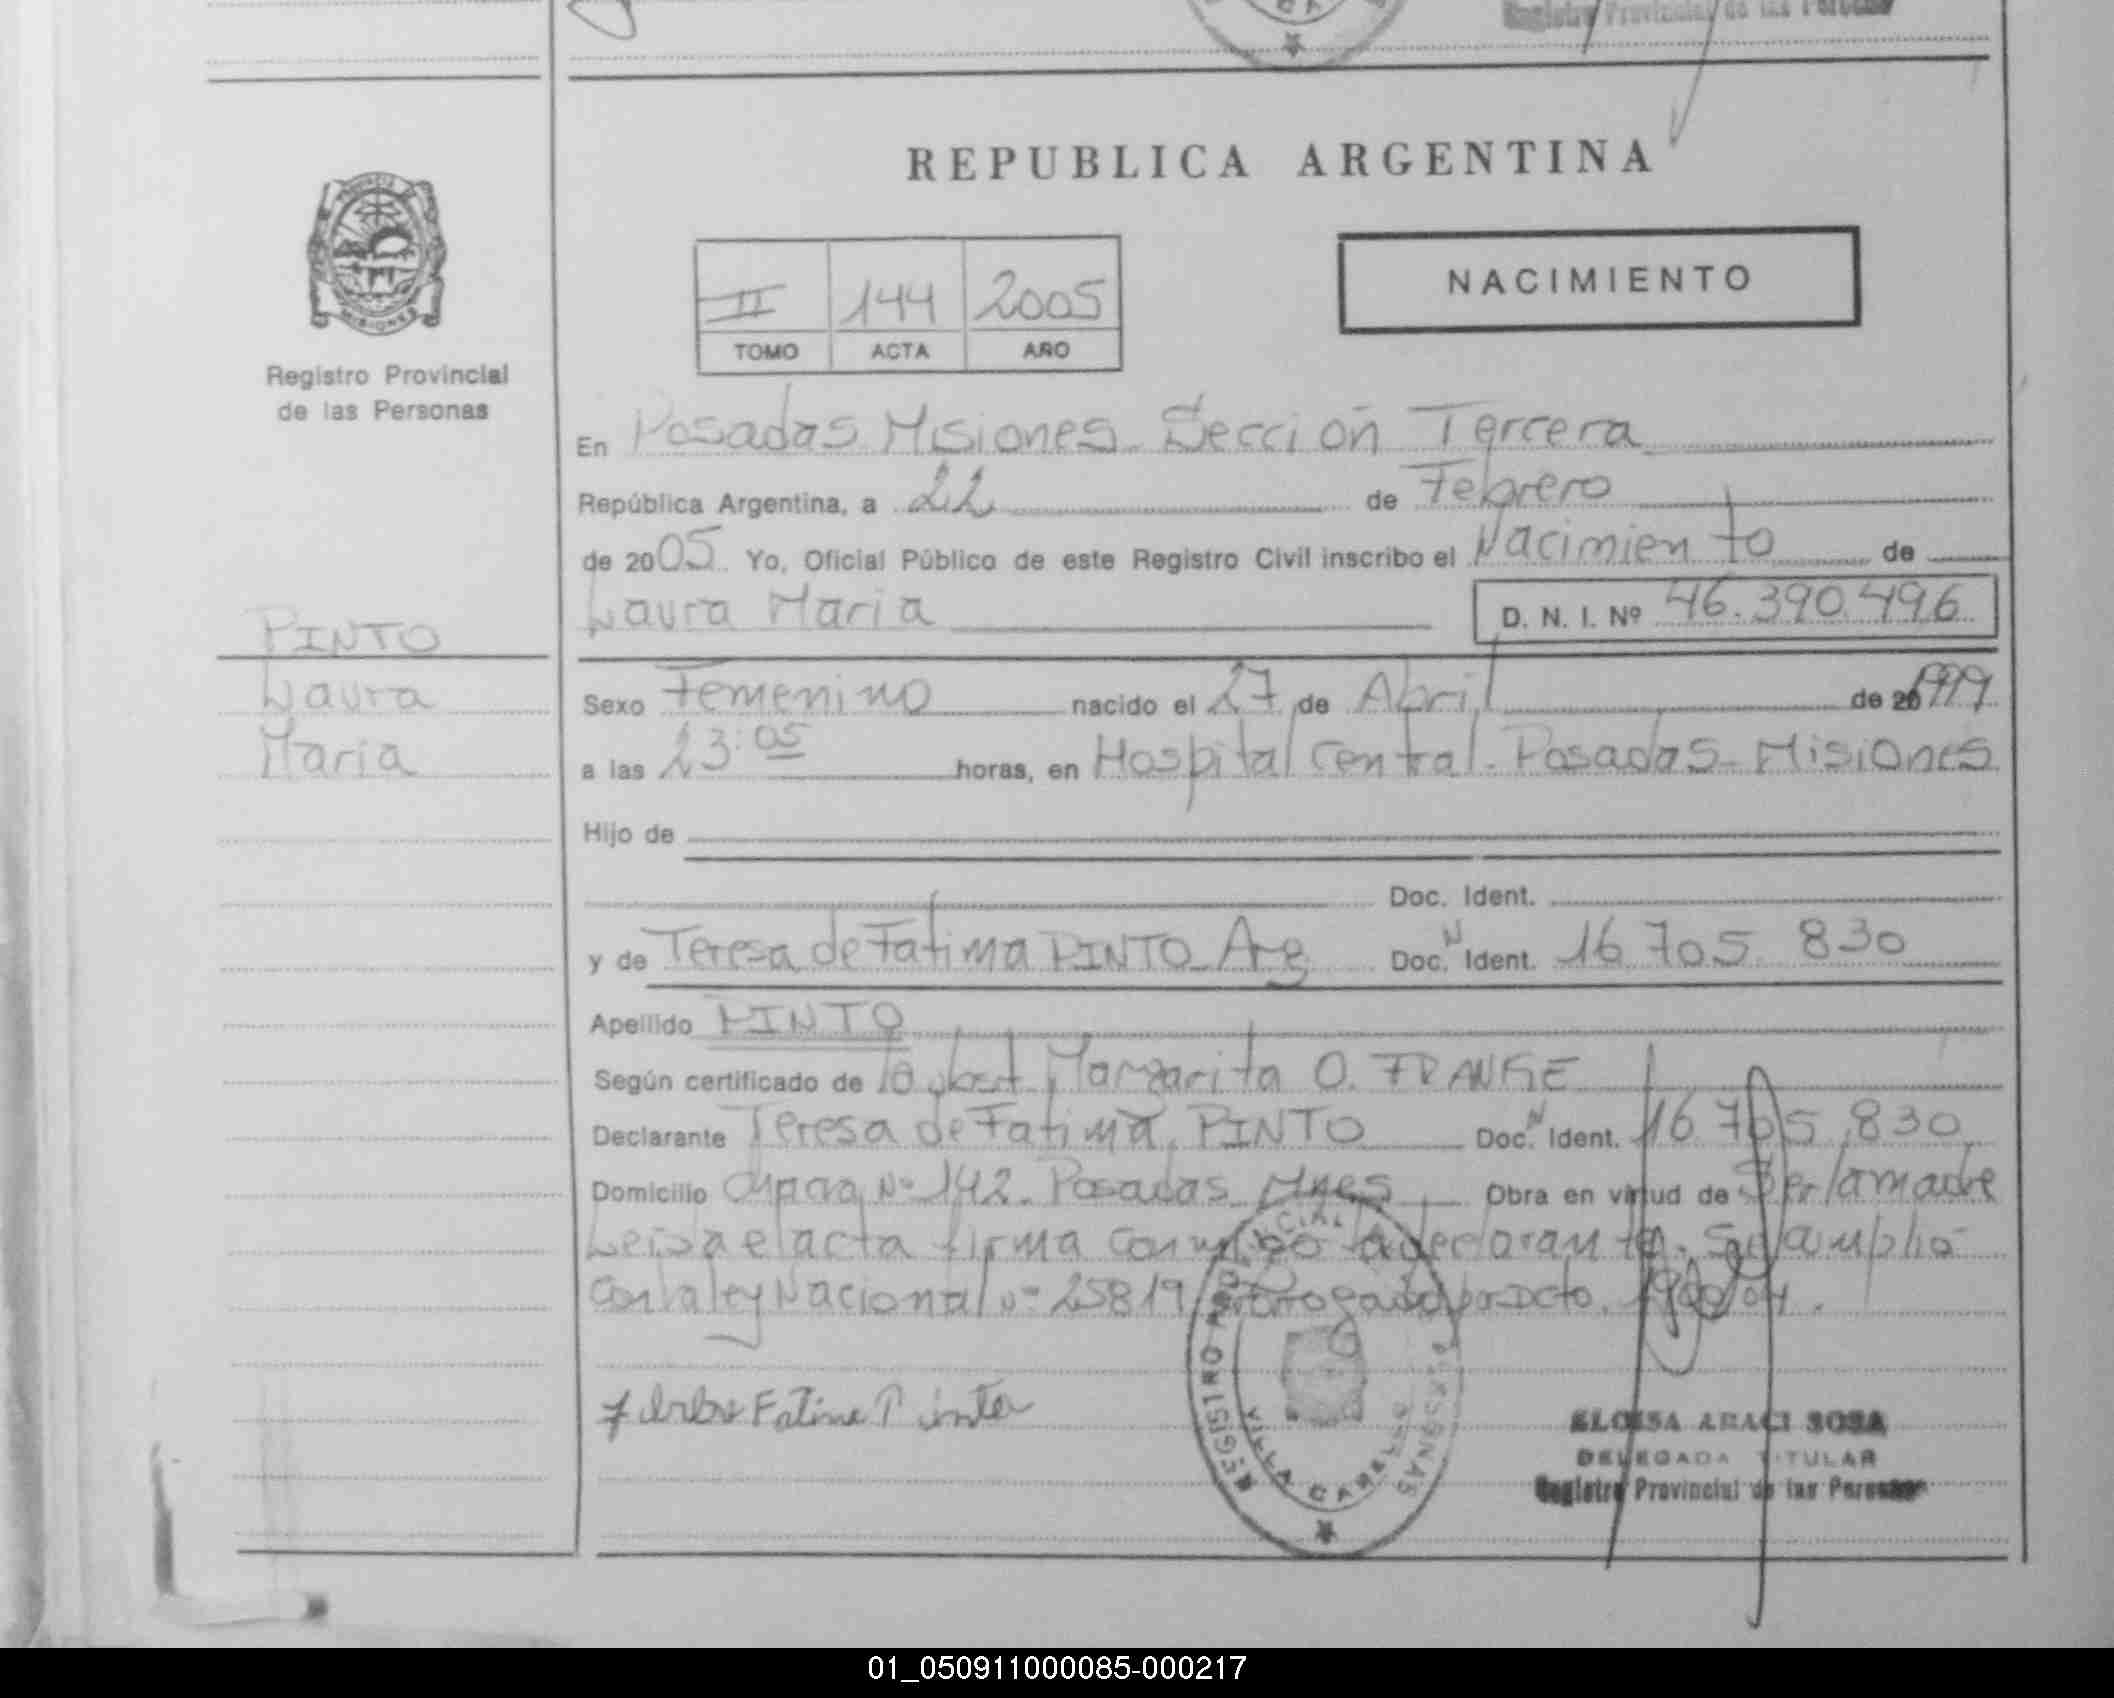 Registro Provincial de las Personas
REPUBLICA ARGENTINA
PROVINCIA DE
MISIONES
Registro Provincial
de las Personas
II 144 2005
TOMO ACTA AÑO
NACIMIENTO
En Posadas Misiones Sección Tercera
República Argentina, a 22 de Febrero
de 2005 Yo, Oficial Público de este Registro Civil inscribo el Nacimiento de
Laura Maria D. N. I. Nº 46.390.496
PINTO
Laura
Maria
Sexo Femenino nacido el 27 de Abril de 20 1999
a las 23:05 horas, en Hospital Central. Posadas - Misiones
Hijo de
Doc. Ident.
y de Teresa de Fatima PINTO Arg Doc. N Ident. 16 705 830
Apellido PINTO
Según certificado de Margarita O.
Declarante Teresa de Fatima PINTO Doc. N Ident. 16 705 830
Domicilio Nº 142. Posadas Mnes Obra en virtud de Ser la madre
Leida el acta firma conmigo la declarante. Se amplio
con la ley Nacional Nº 25819 Prorrogado por Dcto.
Fatima Pinto
REGISTRO PROVINCIAL PERSONAS
VILLA CABELLO
ELOISA ARACI SOSA
DELEGADA TITULAR
Registro Provincial de las Personas
01_050911000085-000217